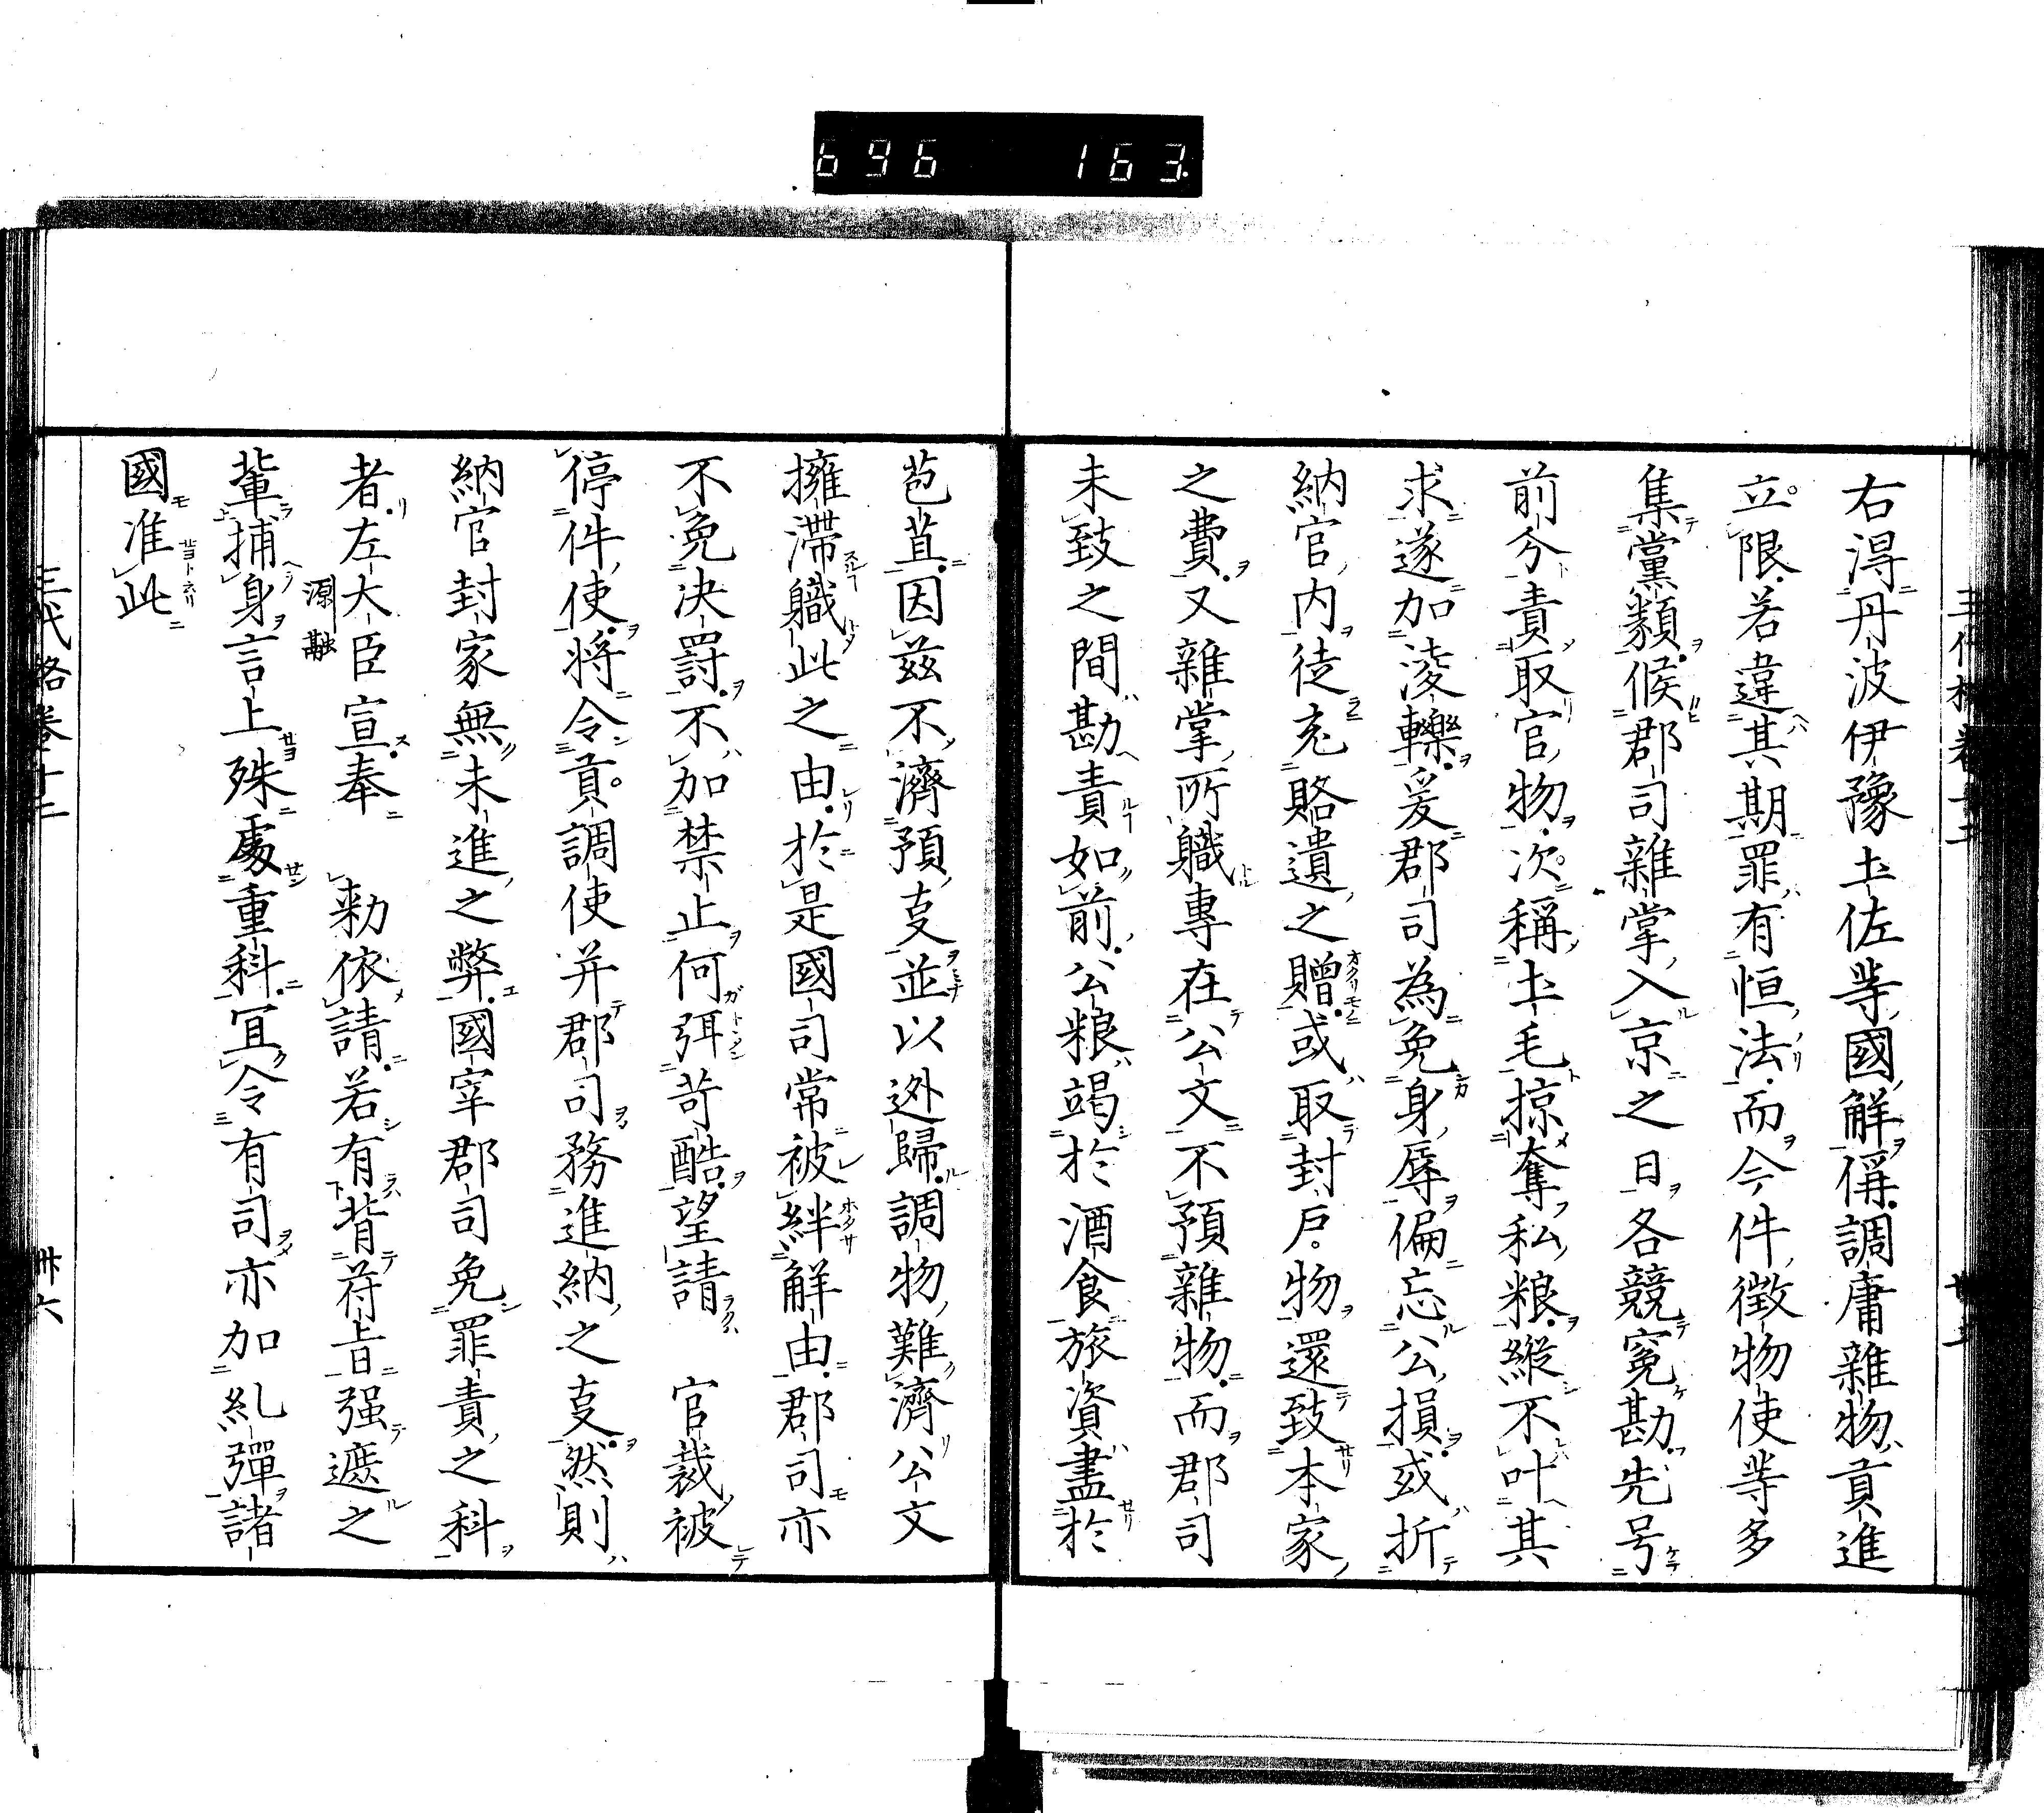 696 163
右得丹波伊豫土佐等國解偁調庸雜物貢進
立限若違其期罪有恒法而今件徴物使等多
集黨類候郡司雜掌入京之日各競寃勘先号
前分責取官物次稱土毛掠奪私粮縱不叶其
求遂加凌轢爰郡司為免身辱偏忘公損或折
納官内徒充賂遺之贈或取封戸物還致本家
之費又雜掌所職專在公文不預雜物而郡司
未致之間勘責如前公粮竭於酒食旅資盡於
苞苴因茲不濟預㕝並以迯歸調物難濟公文
擁滯職此之由於是國司常被絆解由郡司亦
不免决罸不加禁止何弭苛酷望請 官裁被
停件使將令貢調使并郡司務進納之㕝然則
納官封家無未進之弊國宰郡司免罪責之科
者左大臣宣奉 勅依請若有背符旨强遮之
源融
輩捕身言上殊處重科冝令有司亦加糺彈諸
國准此
三代格卷十二 卅六